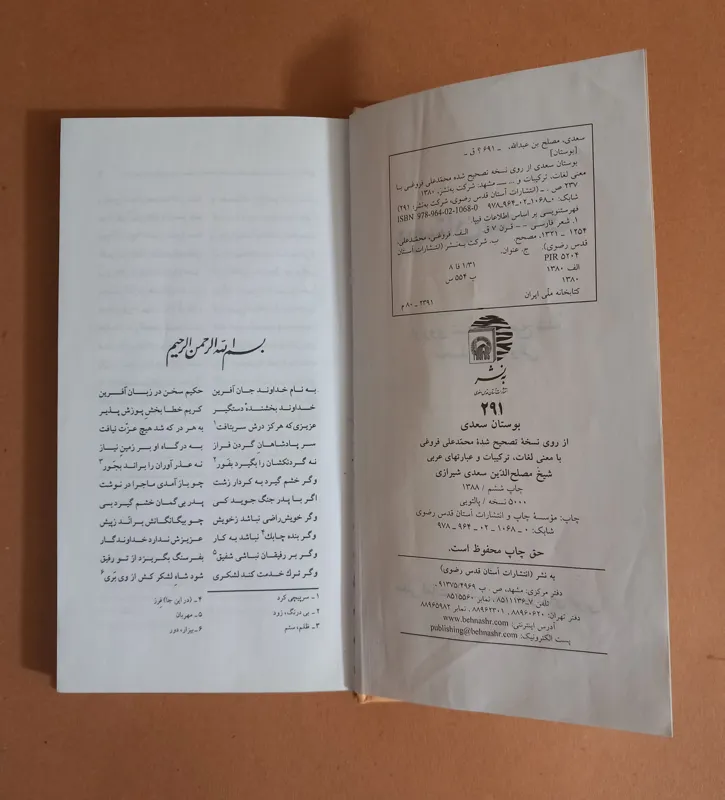 سعدی، مصلح بن عبدالله، ـ ۶۹۱ ؟ ق ـ
[بوستان]
بوستان سعدی از روی نسخه تصحیح شده محمّدعلی فروغی با
معنی لغات، ترکیبات و ... ـــ مشهد: شرکت به‌نشر، ۱۳۸۰.
۲۳۷ ص. ـ (انتشارات آستان قدس رضوی، شرکت به‌نشر؛ ۲۹۱)
شابک: ۰ـ۱۰۶۸ـ۰۲ـ۹۶۴ـ۹۷۸ ISBN 978-964-02-1068-0
فهرستنویسی بر اساس اطلاعات فیپا.
۱. شعر فارسی ـ ـ قرن ۷ ق. الف. فروغی، محمّدعلی،
۱۲۵۴ ـ ۱۳۲۱، مصحح ب. شرکت به‌نشر (انتشارات آستان
قدس رضوی). ج. عنوان.
PIR ۵۲۰۴ ۸ فا ۱/۳۱
الف ۱۳۸۰ پ ۵۵۴ س
۱۳۸۰
کتابخانه ملّی ایران ۲۳۹۱ ـ ۸۰ م
به نشر
۲۹۱
بوستان سعدی
از روی نسخهٔ تصحیح شدهٔ محمّدعلی فروغی
با معنی لغات، ترکیبات و عبارتهای عربی
شیخ مصلح‌الدّین سعدی شیرازی
چاپ ششم / ۱۳۸۸
۵۰۰۰ نسخه / پالتویی
چاپ: مؤسسهٔ چاپ و انتشارات آستان قدس رضوی
شابک: ۰ ـ ۱۰۶۸ ـ ۰۲ ـ ۹۶۴ ـ ۹۷۸
حق چاپ محفوظ است.
به نشر (انتشارات آستان قدس رضوی)
دفتر مرکزی: مشهد، ص . ب ۹۱۳۷۵/۴۹۶۹
تلفن ۷ـ۸۵۱۱۱۳۶، نمابر ۸۵۱۵۵۶۰
دفتر تهران: ۸۸۹۶۰۶۲۰ ، ۸۸۹۶۲۳۰۱ ، نمابر ۸۸۹۶۵۹۸۲
آدرس اینترنتی: www.behnashr.com
پست الکترونیک: publishing@behnashr.com
بسم الله الرحمن الرحیم
به نام خداوند جان آفرین حکیم سخن در زبان آفرین
خداوند بخشندهٔ دستگیر کریم خطا بخش پوزش پذیر
عزیزی که هرکز درش سربتافت۱ به هر در که شد هیچ عزّت نیافت
سر پادشاهان گردن فراز به درگاه او بر زمین نیاز
نه گردنکشان را بگیرد بفور۲ نه عذر آوران را براند بجور۳
وگر خشم گیرد به کردار زشت چو باز آمدی ماجرا در نوشت
اگر با پدر جنگ جوید کسی پدر بی‌گمان خشم گیرد بسی
وگر خویش راضی نباشد زخویش چو بیگانگانش براند زپیش
وگر بنده چابك۴ نباشد به کار عزیزش ندارد خداوندگار
وگر بر رفیقان نباشی شفیق۵ بفرسنگ بگریزد از تو رفیق
وگر ترك خدمت کند لشکری شود شاه لشکر کش از وی بَری۶
۱ ـ سرپیچی کرد
۲ ـ بی درنگ، زود
۳ ـ ظلم، ستم
۴ ـ (در این جا) فِرز
۵ ـ مهربان
۶ ـ بیزار، دور